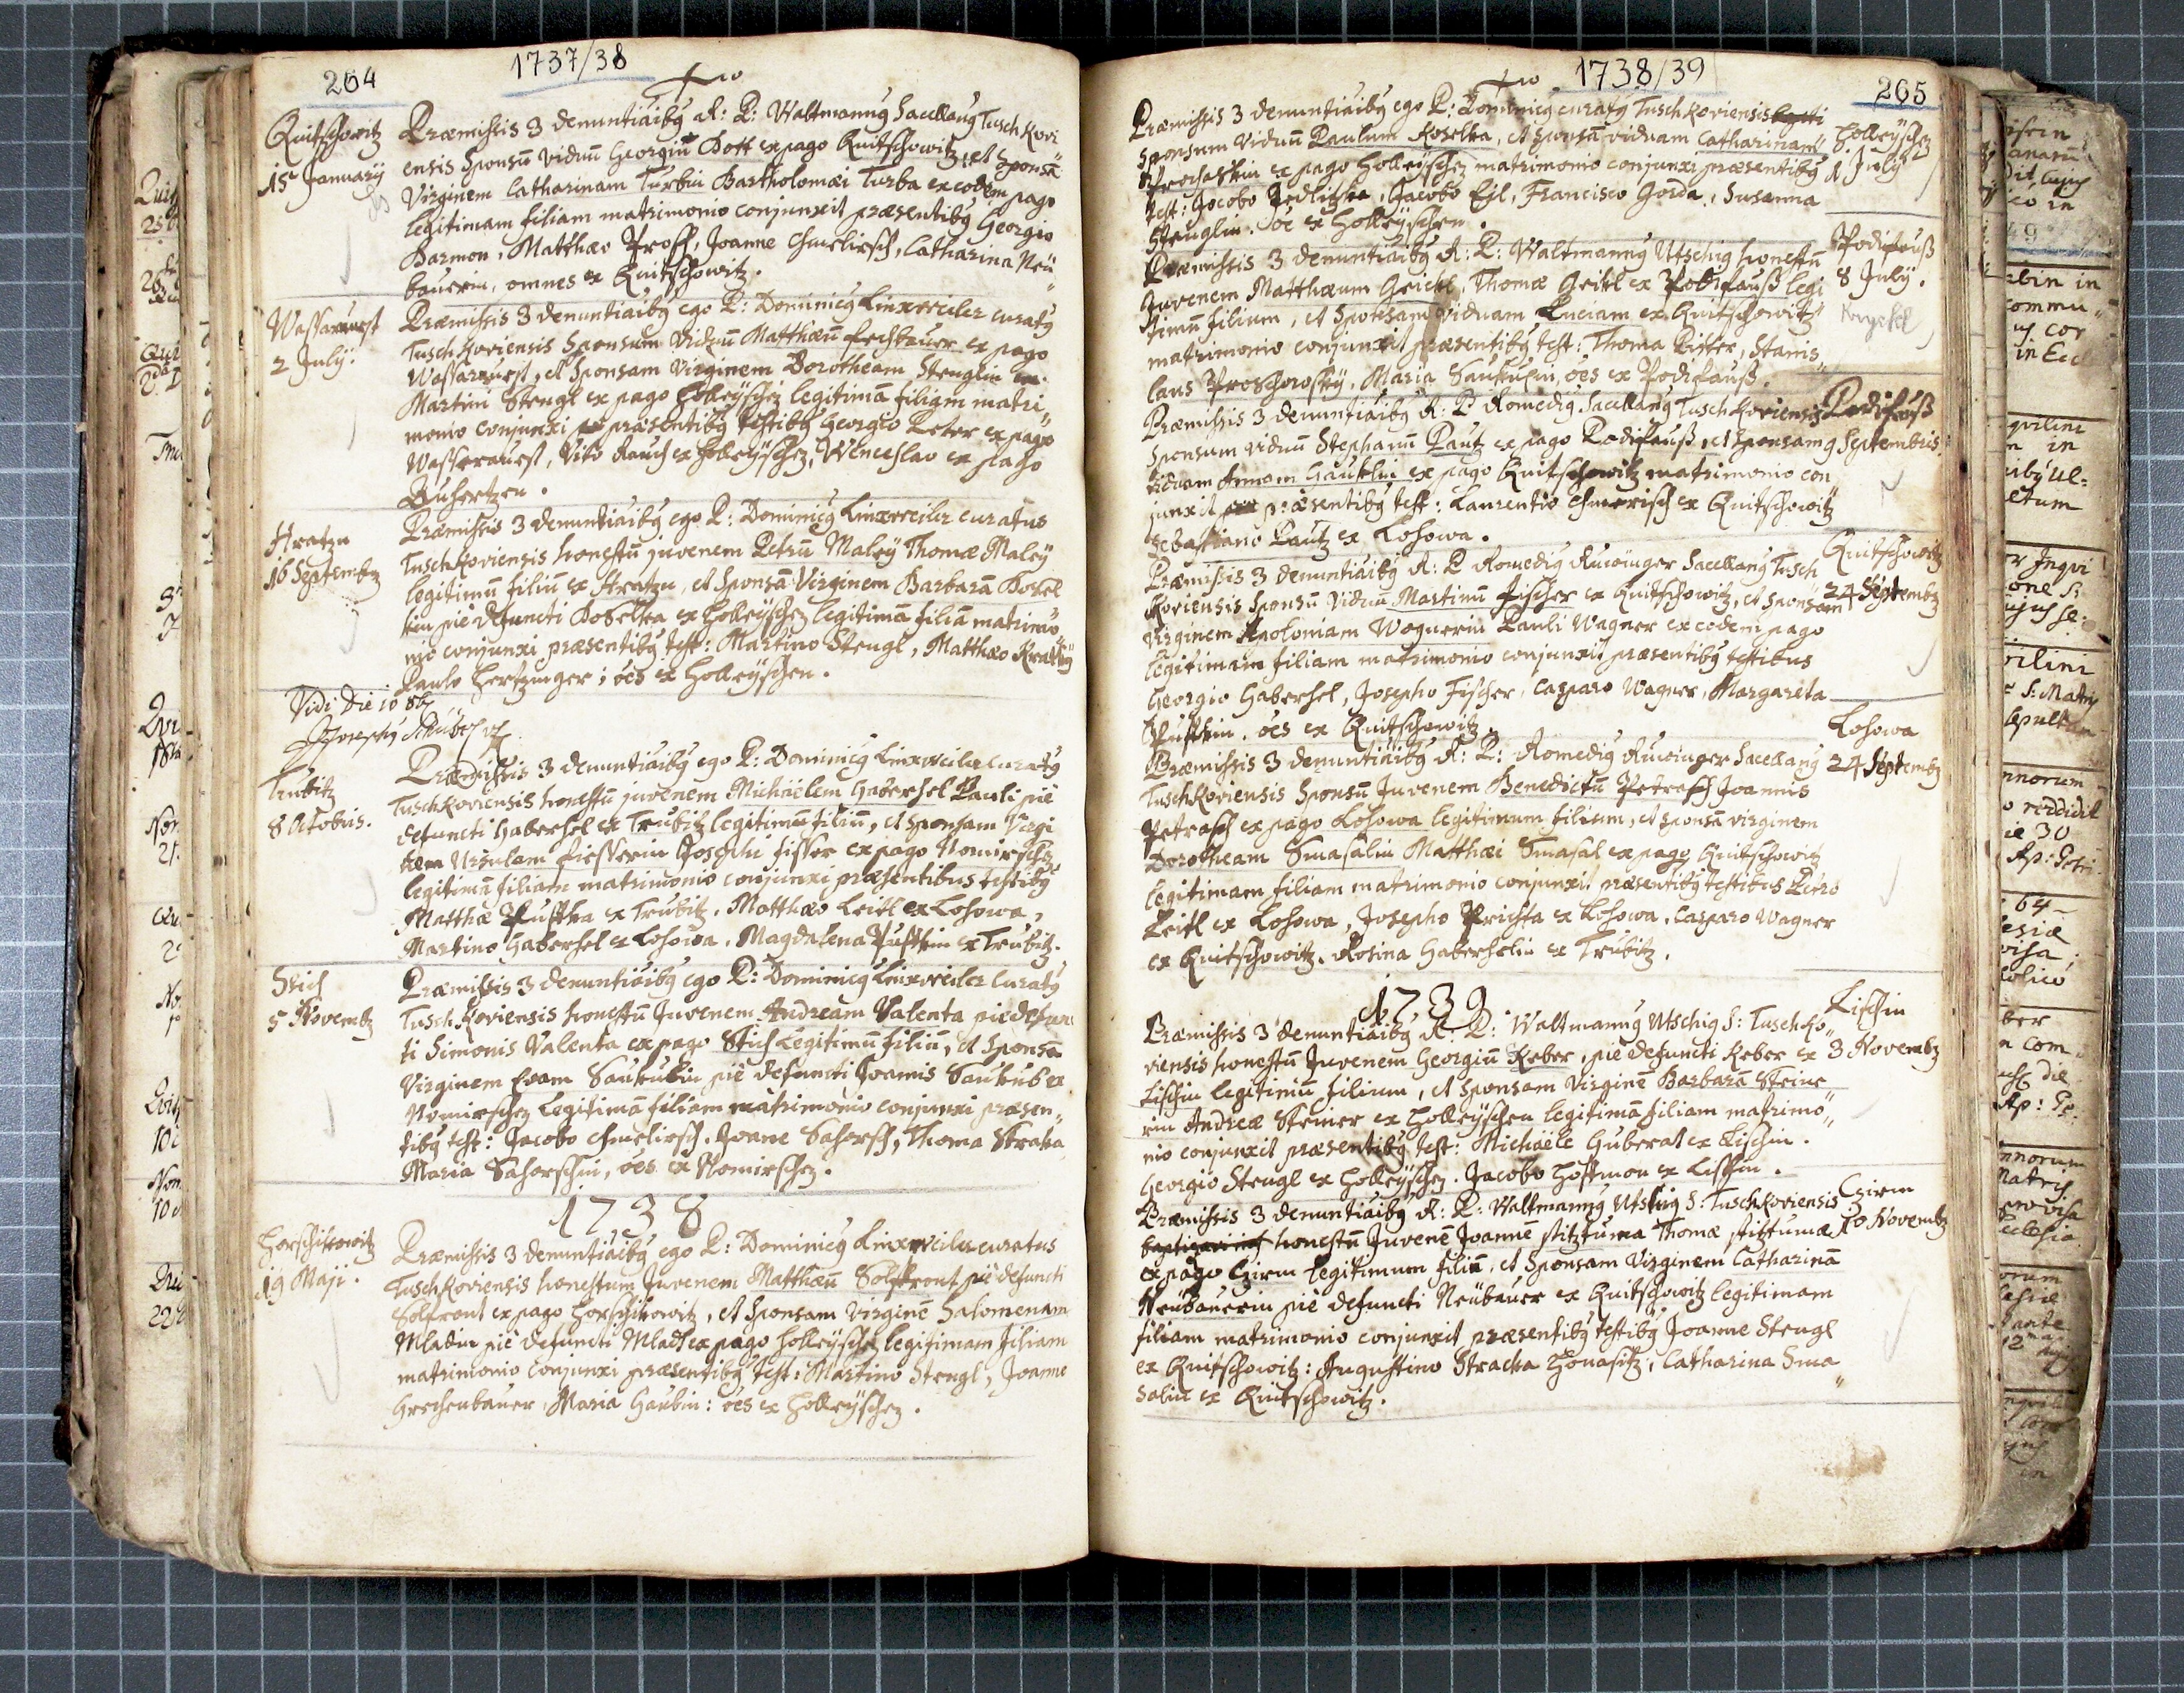 264
1737/38
Quitschowitz
15 January
Præmissis 3 denuntiãibq R: P: Waltmannq Sacellanq Tuschkovi
ensis Sponsū viduū Georgiū Dott ex pago Quitschowitz, et Sponsā
Virginem Catharinam Turbin Bartholomæi Turba ex eodem pago
legitimam filiam matrimonio conjunxit præsentibq Georgio
Barmon, Matthæo Prosch, Joanne Chmelirsch, Catharina Neü
bauerin, omnes ex Quitschowitz.
2 July.
Præmissis 3 denuntiãibq ego P: Dominicq Linxweiler curatq
Tuschkoviensis Sponsum viduū Matthæū Fechtauer ex pago
Wasseraurst, et Sponsam Virginem Dorotheam Stenglin
Martini Stengl ex pago Holleÿschez legitimā filiam matri„
monio conjunxi præsentibq testibq Georgio Peter ex pago
Wasseraurst, Vito Rauch ex Holleÿschez, Wenceslao ex pago
Auhertzen.
Hratzn
16 Septembr
Præmissis 3 denuntiãibq ego P: Dominicq Linxweiler curatus
Tuschkoviensis honestū juvenem Petrū Maleÿ Thomæ Maleÿ
legitimū filiū ex Hratzn, et Sponsā Virginem Barbarā Dosel
kin piè defuncti Doselka ex Holleÿschez legitimā filiā matrimo„
nio conjunxi præsentibq test: Martino Stengl, Matthæo
Paulo Hertzinger; oẽs ex Holleÿschen.
Vidi Die 10 8br
Trubitz
8 Octobris.
Præmissis 3 denuntiãibq ego P: Dominicq Linxweiler curatq
Tuschkoviensis honestū juvenem Michäelem Habershel Pauli piè
defuncti Habershel ex Trubitz legitimū filiū, et Sponsam Virgi
nem Ursulam Fiesserin Josephi fisser ex pago Nomirschez
legitimā filiam matrimonio conjunxi præsentibus testibq
Matthæ Pustka ex Trubitz, Matthæo Leitl ex Losowa,
Martino Habershel ex Losowa, Magdalena Pustkin ex Trubitz.
Stich
5 Novembr
Præmissis 3 denuntiãibq ego P: Dominicq Linxweiler curatq
Tuschkoviensis honestū Juvenem Andream Valenta piè defunc
ti Simonis Valenta ex pago Stich Legitimū filiū, et Sponsā
Virginem Evam Saukubin piè defuncti Joannis Saukub ex
Nomirschez Legitimā filiam matrimonio conjunxi præsen„
tibq test: Jacobo Chmelirsch, Joane Sahorsch, Thoma Straka
Maria Sahorschin, oẽs ex Nomirschez.
1738
Horschikowitz
19 Maji.
Præmissis 3 denuntiãibq ego P: Dominicq Linxweiler curatus
Tuschkoviensis honestum Juvenem Matthæū Solfront piè defuncti
Solfront ex pago Horschikowitz, et Sponsam Virginē Salomenam
Mladin piè defuncti Mladt ex pago Holleÿschez legitimam filiam
matrimonio conjunxi præsentibq test: Martino Stengl, Joanne
Grechenbauer, Maria Haubin: oẽs ex Holleÿschez.
1738/39
265
Præmissis 3 denuntiãibq ego P: Dominicq curatq Tuschkoviensis
Sponsum viduū Paulum Koselka, et Sponsā viduam Catharinam
Prochaskin ex pago Holleÿschez matrimonio conjunxi præsentibq
test: Jacobo Jedlitzka, Jacobo Eil, Francisco Gorda, Susanna
Stenglin. oẽs ex Holleÿschen.
Holleÿschez
1 July
Præmissis 3 denuntiãibq R: P: Waltmannq Utschig honestū
Juvenem Matthæum Greitl, Thomæ Greitl ex Podifauß legi
timū filium, et Sponsam viduam Luciam ex Quitschowitz
matrimonio conjunxit præsentibq test: Thoma Pister, Stanis„
laus Proschowsky, Maria Saukubin, oẽs ex Podifauß.
Podifauß
8 July.
Præmissis 3 denuntiãibq R: P Romediq Sacellanq Tuschkoviensis
Sponsum viduū Stephanū Pautz ex pago Podifauß, et Sponsam
viduam Annam Hauklin ex pago Quitschowitz matrimonio con
junxit præsentibq test: Laurentio Chmerisch ex Quitschowitz
Sebastiano Pautz ex Losowa.
Podifauß
9 Septembris
Præmissis 3 denuntiãibq R: P Romediq Sacellanq Tusch
koviensis Sponsū viduū Martinū Fischer ex Quitschowitz, et Sponsam
Virginem Apoloniam Wagnerin Pauli Wagner ex eodem pago
legitimam filiam matrimonio conjunxit præsentibq testibus
Georgio Habershel, Josepho Fischer, Casparo Wagner, Margareta
Pustkin. oẽs ex Quitschowitz.
Quitschowitz
24 Septembr
Præmissis 3 denuntiãibq R: P: Romediq Sacellanq
Tuschkoviensis Sponsū Juvenem Benedictū Petrasch Joannis
Petrasch ex pago Losowa legitimum filium, et Sponsā virginem
Dorotheam Smasalin Matthæi Smasal ex pago Quitschowitz
legitimam filiam matrimonio conjunxit præsentibq testibus Petro
Leitl ex Losowa, Josepho Prichta ex Losowa, Casparo Wagner
ex Quitschowitz. Rosina Habershelin ex Trubitz.
Losowa
24 Septembr
1739
Præmissis 3 denuntiãibq R: P: Waltmannq Utschig S: Tuschko„
viensis honestū Juvenem Georgiū Reber, piè defuncti Reber ex
Lischin legitimū filium, et Sponsam Virginē Barbarā Steine
rin Andreæ Steiner ex Holleÿschen legitimā filiam matrimo„
nio conjunxit præsentibq test: Michäele Guberat ex Lischin.
Georgio Stengl ex Holleÿschez. Jacobo Hoffman ex Lischin.
Lischin
3 Novembr
Præmissis 3 denuntiãibq R: P: Waltmannq Utschig S: Tuschkoviensis
honestū Juvenē Joannē Stitztuma Thomæ Stittuma
ex pago Czirm legitimum filiū, et Sponsam Virginem Catharinā
Neubauerin piè defuncti Neübauer ex Quitschowitz legitimam
filiam matrimonio conjunxit præsentibq testibq Joanne Stengl
ex Quitschowitz: Augustino Stracka Honasitz, Catharina Sma„
salin ex Quitschowitz.
Czirm
10 Novembr